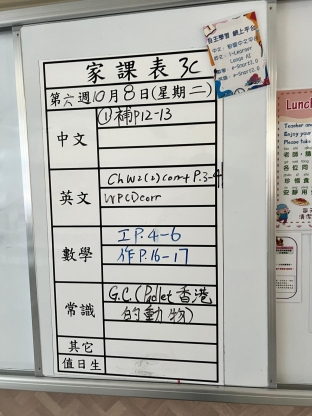 家課表 3C
第六週10月8日(星期二)
中文
①補P.12-13
英文
Ch W2(2) corr + P.3-4
WPCD corr
數學
工P.4-6
作P.16-17
常識
G.C.(Padlet 香港
的動物)
其它
值日生
自主學習 網上平台
Lunch
Teacher an
Enjoy your
Please take
老師，
各位同
珍惜食
安靜用